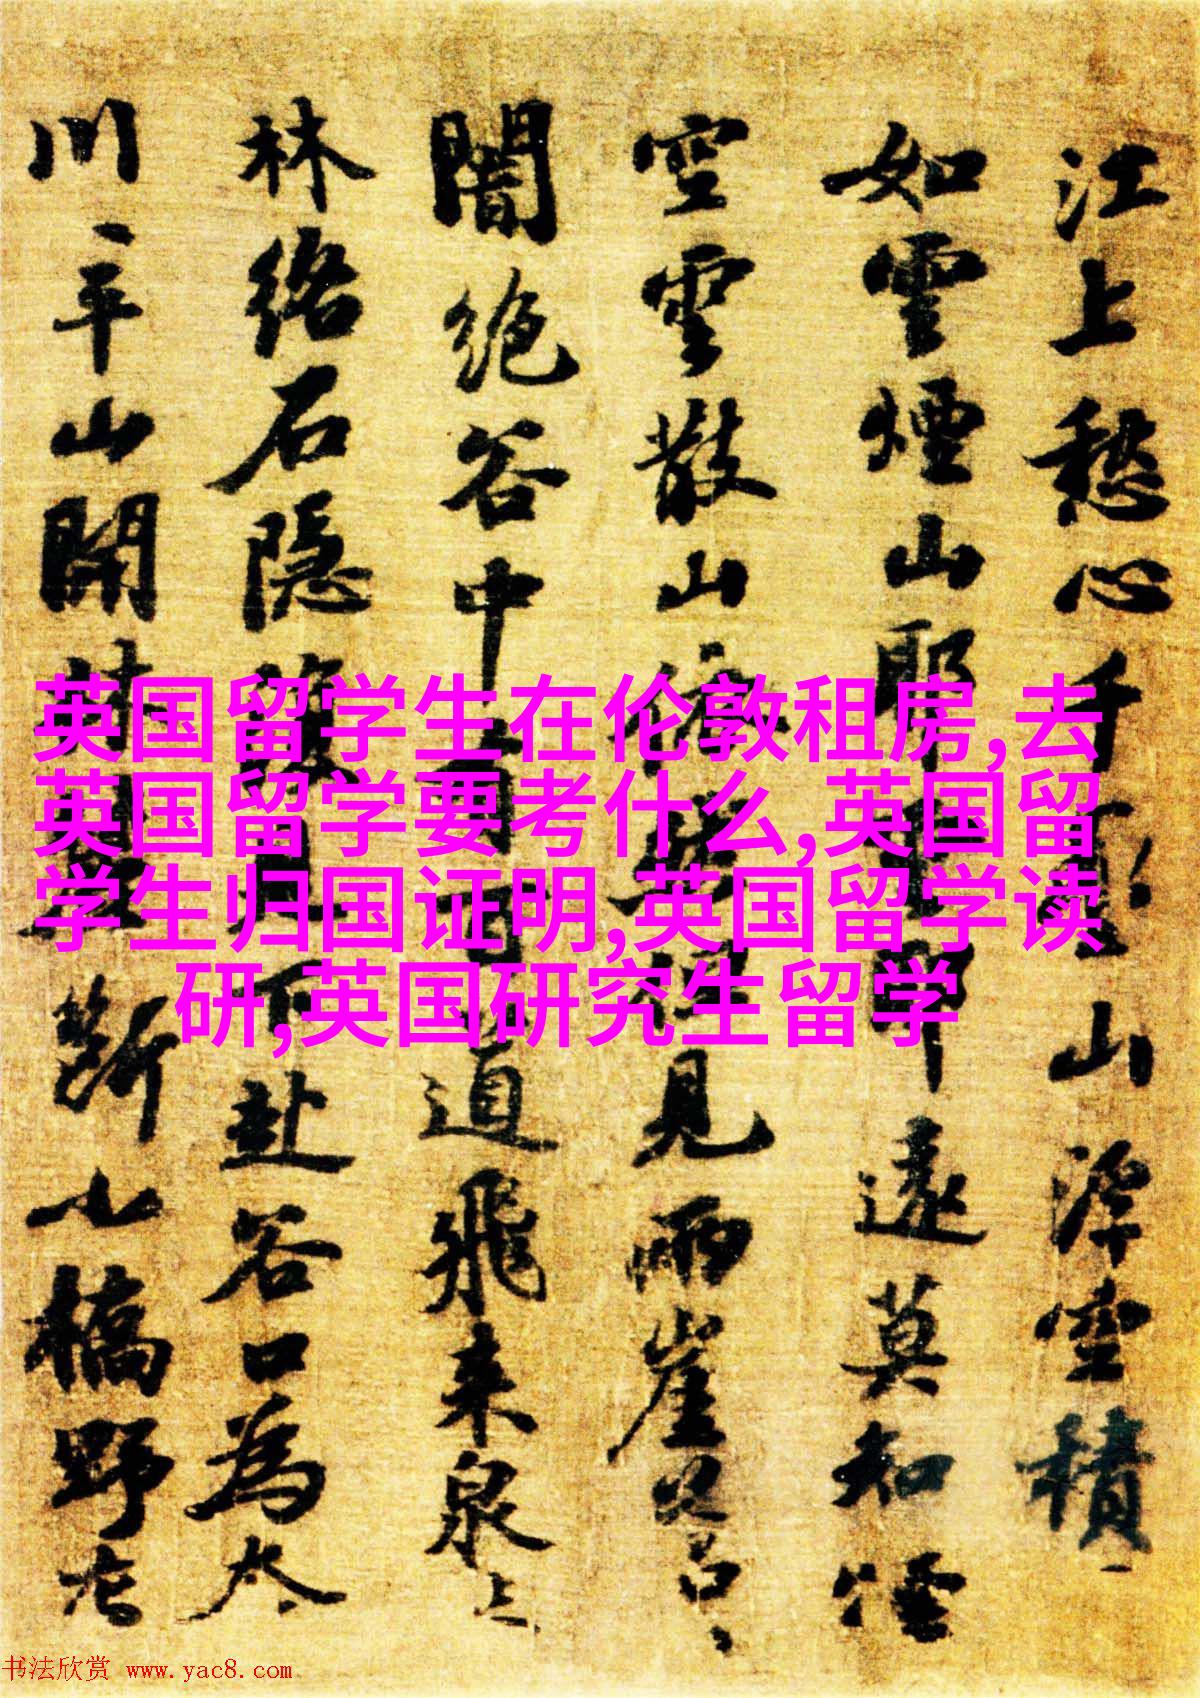 江上愁心千山浮空積
如雲煙山耶遠莫知煙
空雲散山依見兩崖
闇絕谷中道飛來泉
林絡石隱下赴谷口為
川平山開斷小橋野
英国留学生在伦敦租房,去
英国留学要考什么,英国留
学生归国证明,英国留学读
研,英国研究生留学
书法欣赏 www.yac8.com